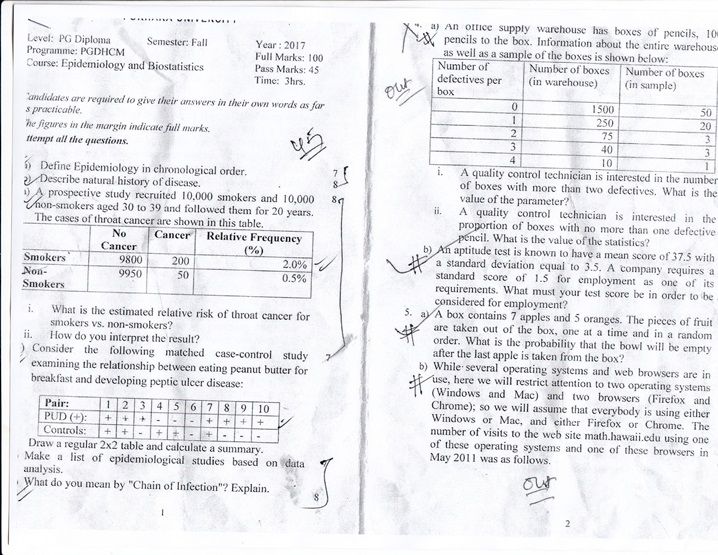 Level: PG Diploma Semester: Fall Year : 2017
Programme: PGDHCM Full Marks: 100
Course: Epidemiology and Biostatistics Pass Marks: 45
Time: 3hrs.
Candidates are required to give their answers in their own words as far
s practicable.
The figures in the margin indicate full marks.
ttempt all the questions.
Define Epidemiology in chronological order. 7
Describe natural history of disease. 8
A prospective study recruited 10,000 smokers and 10,000 8
non-smokers aged 30 to 39 and followed them for 20 years.
The cases of throat cancer are shown in this table.
No Cancer Cancer Relative Frequency (%)
Smokers 9800 200 2.0%
Non-Smokers 9950 50 0.5%
i. What is the estimated relative risk of throat cancer for
smokers vs. non-smokers?
ii. How do you interpret the result?
) Consider the following matched case-control study 7
examining the relationship between eating peanut butter for
breakfast and developing peptic ulcer disease:
Pair: 1 2 3 4 5 6 7 8 9 10
PUD (+): + + + - - - + + + +
Controls: + + - + + - + - - -
Draw a regular 2x2 table and calculate a summary.
Make a list of epidemiological studies based on data
analysis.
What do you mean by "Chain of Infection"? Explain. 8
1
4. a) An office supply warehouse has boxes of pencils, 10
pencils to the box. Information about the entire warehouse
as well as a sample of the boxes is shown below:
out
Number of defectives per box Number of boxes (in warehouse) Number of boxes (in sample)
0 1500 50
1 250 20
2 75 3
3 40 3
4 10 1
i. A quality control technician is interested in the number
of boxes with more than two defectives. What is the
value of the parameter?
ii. A quality control technician is interested in the
proportion of boxes with no more than one defective
pencil. What is the value of the statistics?
b) An aptitude test is known to have a mean score of 37.5 with
a standard deviation equal to 3.5. A company requires a
standard score of 1.5 for employment as one of its
requirements. What must your test score be in order to be
considered for employment?
5. a) A box contains 7 apples and 5 oranges. The pieces of fruit
are taken out of the box, one at a time and in a random
order. What is the probability that the bowl will be empty
after the last apple is taken from the box?
b) While several operating systems and web browsers are in
use, here we will restrict attention to two operating systems
(Windows and Mac) and two browsers (Firefox and
Chrome); so we will assume that everybody is using either
Windows or Mac, and either Firefox or Chrome. The
number of visits to the web site math.hawaii.edu using one
of these operating systems and one of these browsers in
May 2011 was as follows.
out
2